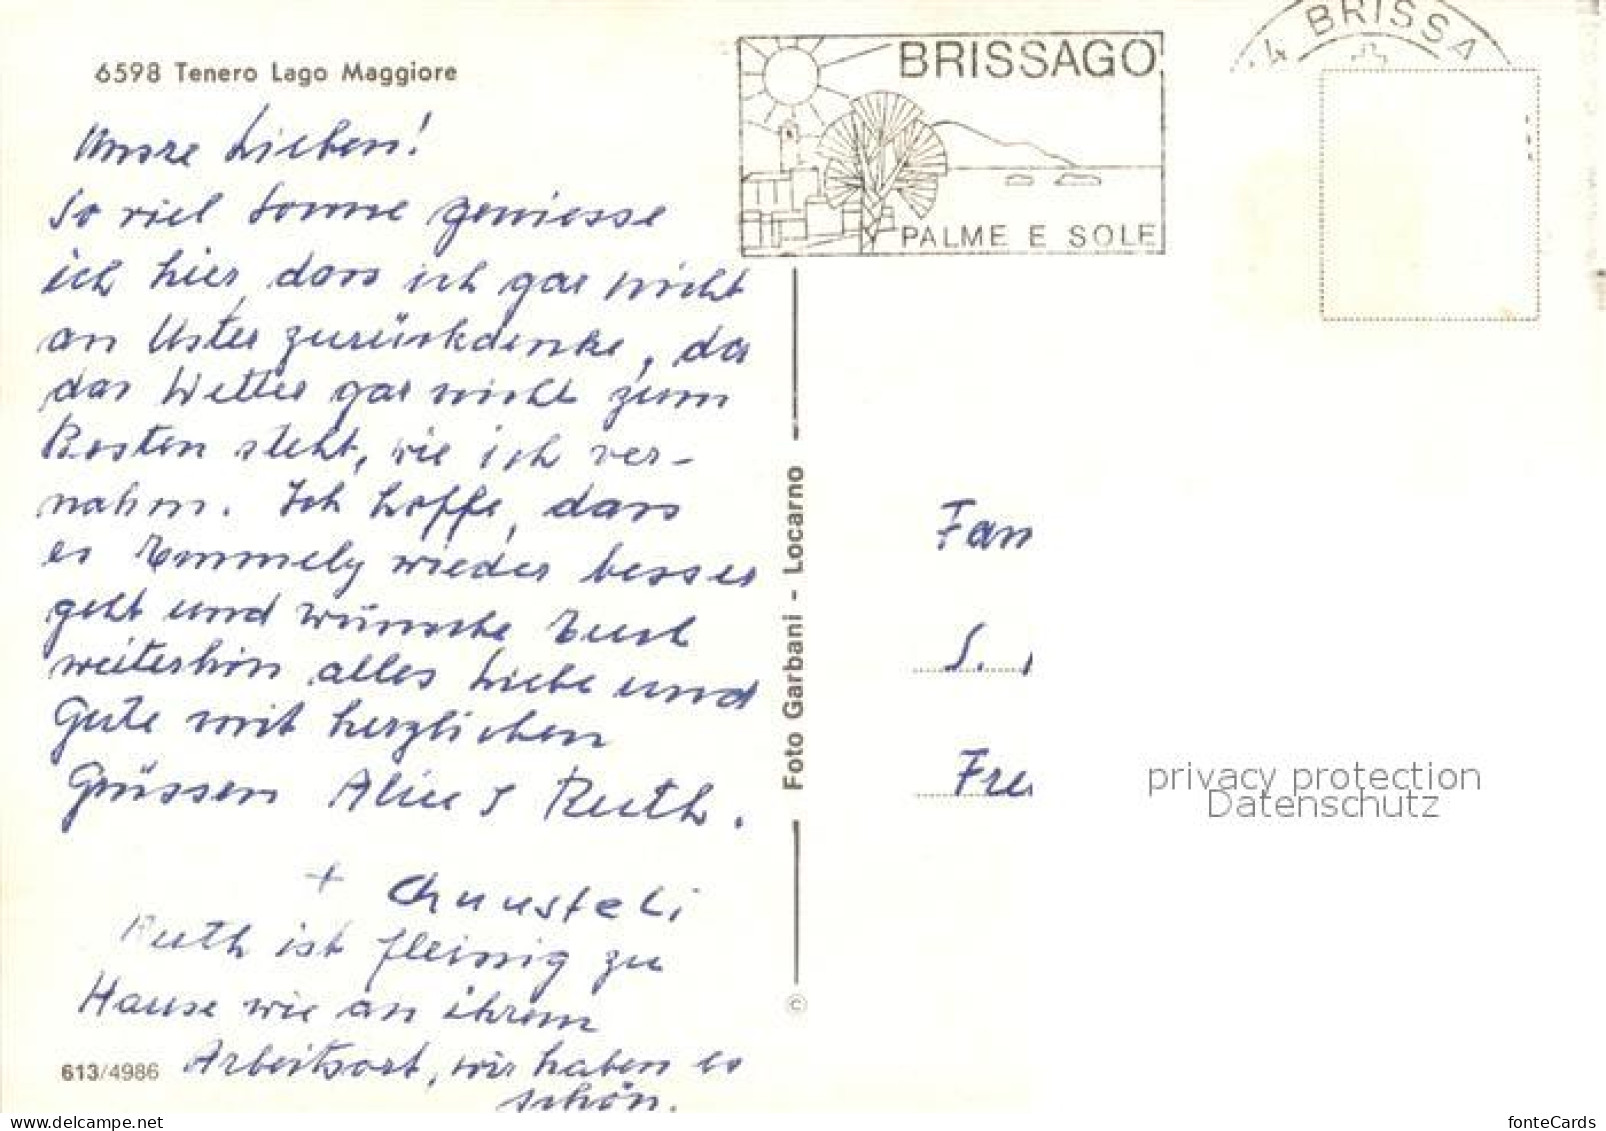 6598 Tenero Lago Maggiore
BRISSAGO
PALME E SOLE
4 BRISSA
Unsre Lieben!
So viel Sonne geniesse
ich hier, dass ich gar nicht
an Uster zurückdenke, da
das Wetter gar nicht zum
Besten steht, wie ich ver-
nahm. Ich hoffe, dass
es Emmely wieder besser
geht und wünsche Euch
weiterhin alles Liebe und
Gute mit herzlichen
Grüssen Alice & Ruth.
+
Ruth ist fleissig zu
Hause wie an ihrem
Arbeitsort, wir haben es
schön.
613/4986
Foto Garbani - Locarno
©
Fam
S.
Fre
privacy protection
Datenschutz
fonteCards